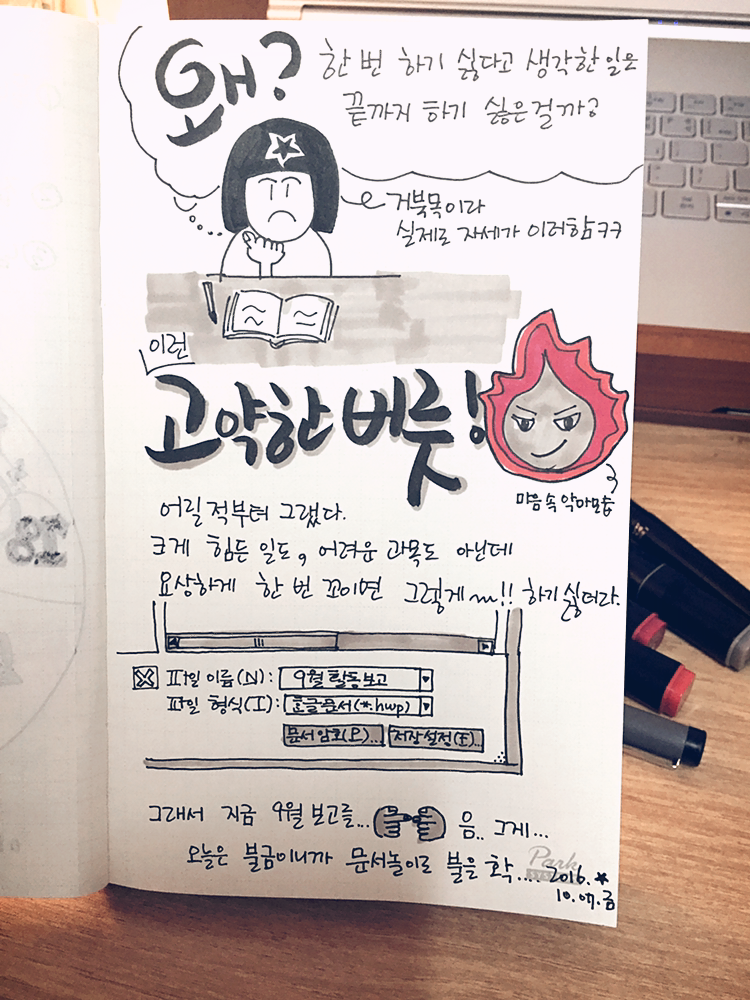 왜? 한 번 하기 싫다고 생각한 일은
끝까지 하기 싫은걸까?
거북목이라
실제로 자세가 이러함ㅋㅋ
이런
고약한 버릇!
마음속 악마모습
어릴 적부터 그랬다.
크게 힘든 일도, 어려운 과목도 아닌데
요상하게 한 번 꼬이면 그렇게 ~!! 하기싫더라.
파일 이름(N): 9월 활동보고
파일 형식(I): 한글문서(*.hwp)
문서암호(P)... 저장설정(E)...
그래서 지금 9월 보고를... 음.. 그게...
오늘은 불금이니까 문서놀이로 불을 화악....
Park
2016.
10.07.금